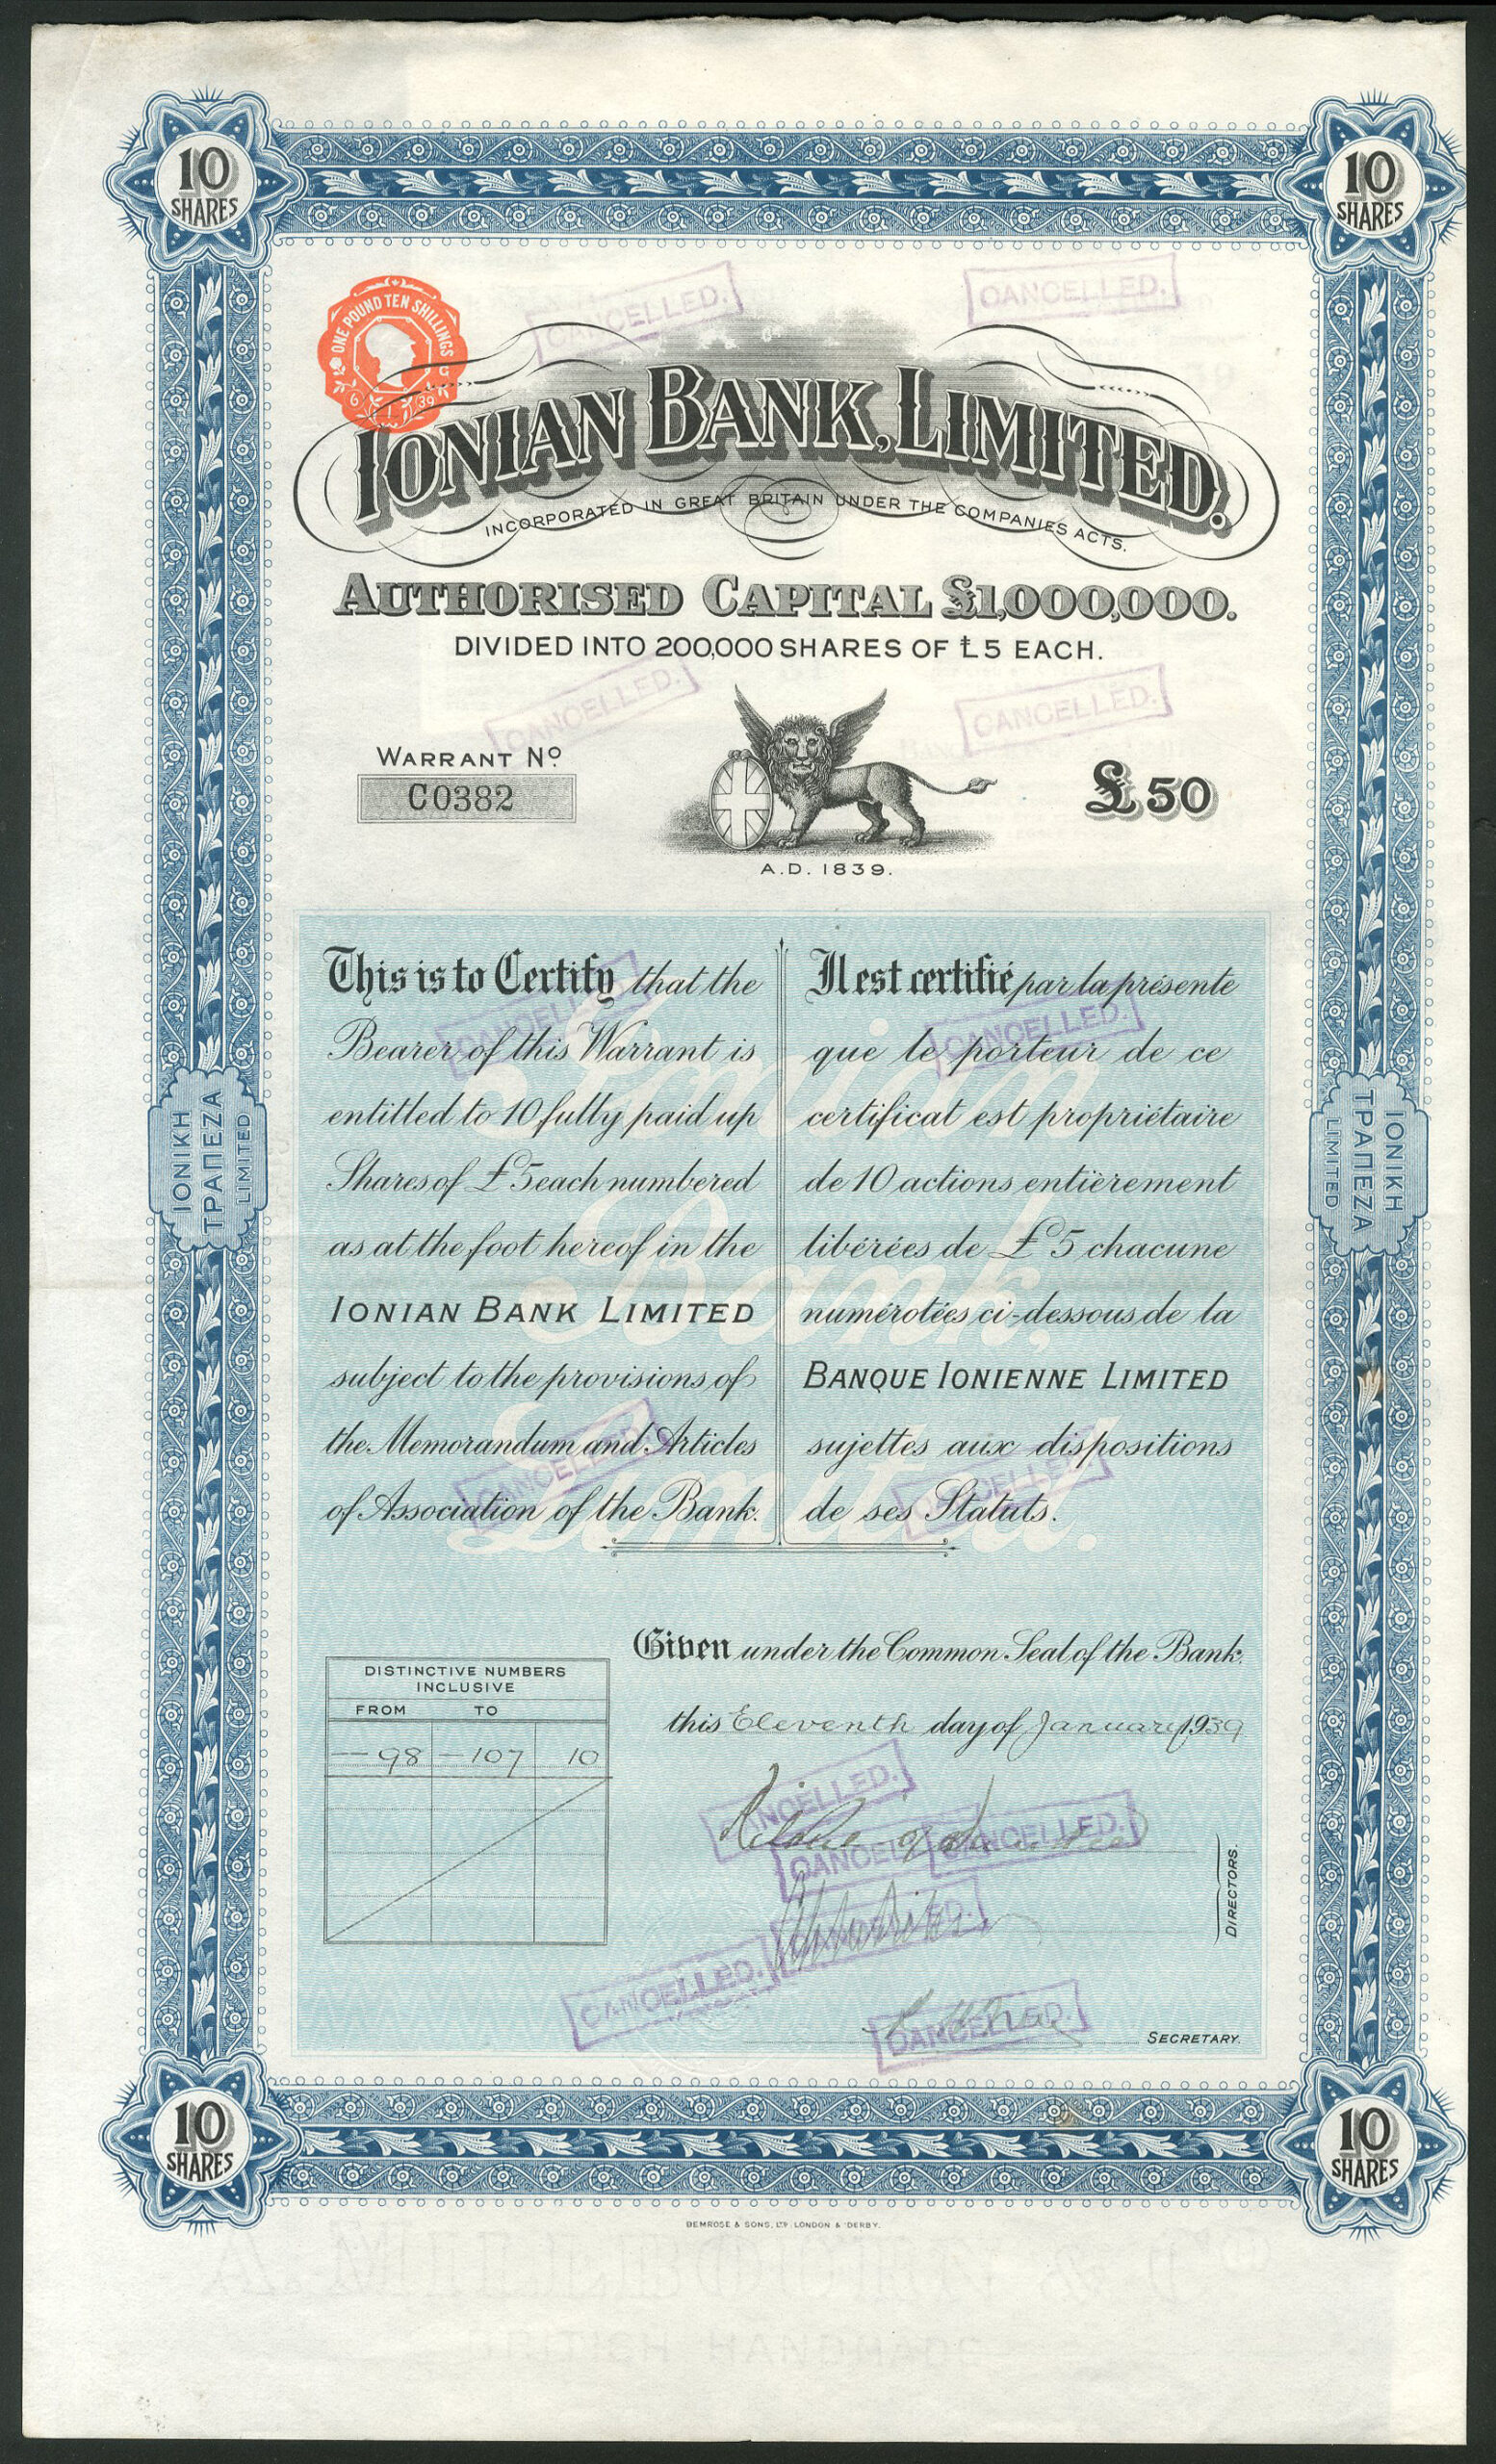 10
SHARES
10
SHARES
ONE POUND TEN SHILLINGS
6 1 39
CANCELLED.
CANCELLED.
IONIAN BANK, LIMITED.
INCORPORATED IN GREAT BRITAIN UNDER THE COMPANIES ACTS.
AUTHORISED CAPITAL £1,000,000.
DIVIDED INTO 200,000 SHARES OF £5 EACH.
CANCELLED.
CANCELLED.
WARRANT No.
C0382
£50
A.D. 1839.
This is to Certify that the
Bearer of this Warrant is
entitled to 10 fully paid up
Shares of £5 each numbered
as at the foot hereof in the
IONIAN BANK LIMITED
subject to the provisions of
the Memorandum and Articles
of Association of the Bank.
Il est certifié par la présente
que le porteur de ce
certificat est propriétaire
de 10 actions entièrement
libérées de £5 chacune
numérotées ci-dessous de la
BANQUE IONIENNE LIMITED
sujettes aux dispositions
de ses Statuts.
CANCELLED.
CANCELLED.
CANCELLED.
CANCELLED.
Ionian
Bank,
Limited.
ΙΟΝΙΚΗ
ΤΡΑΠΕΖΑ
LIMITED
ΙΟΝΙΚΗ
ΤΡΑΠΕΖΑ
LIMITED
Given under the Common Seal of the Bank,
this Eleventh day of January 1939
DISTINCTIVE NUMBERS
INCLUSIVE
FROM TO
— 98 — 107 10
CANCELLED.
CANCELLED.
CANCELLED.
CANCELLED.
CANCELLED.
CANCELLED.
DIRECTORS.
SECRETARY.
10
SHARES
10
SHARES
BEMROSE & SONS, LTD. LONDON & DERBY.